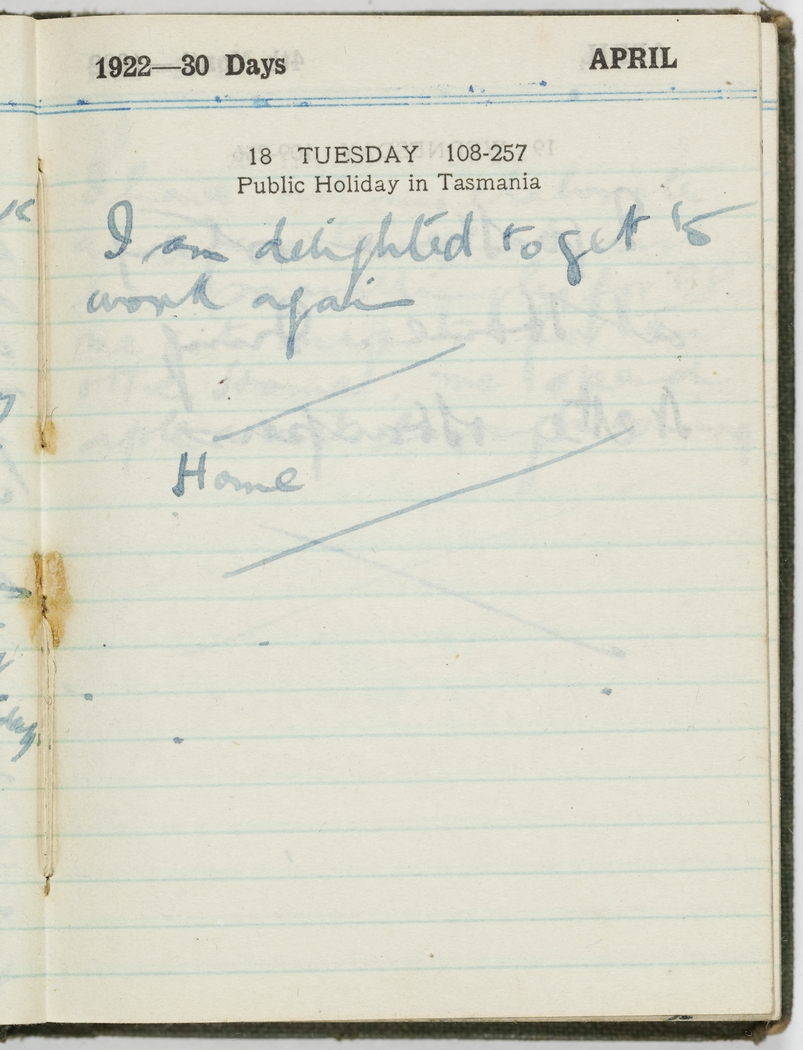 1922—30 Days APRIL
18 TUESDAY 108-257
Public Holiday in Tasmania
I am delighted to get to
work again
Home